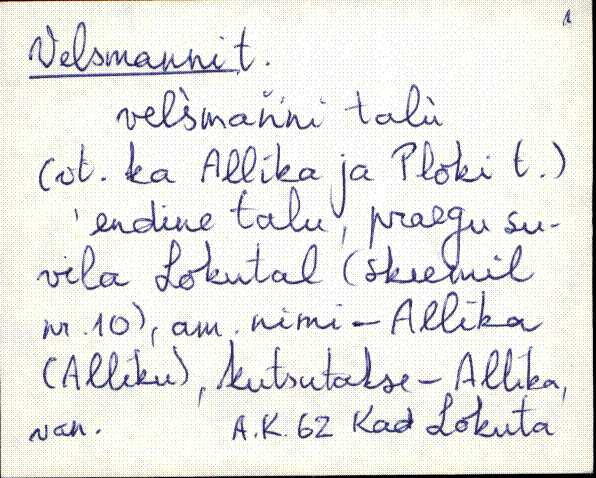 1
Velsmanni t.
vel̀smań̀ni talù
(vt. ka Allika ja Ploki t.)
'endine talu, praegu su-
vila Lokutal (skeemil
nr. 10), am. nimi - Allika
(Alliku), kutsutakse - Allika,
van. A.K. 62 Kad Lokuta